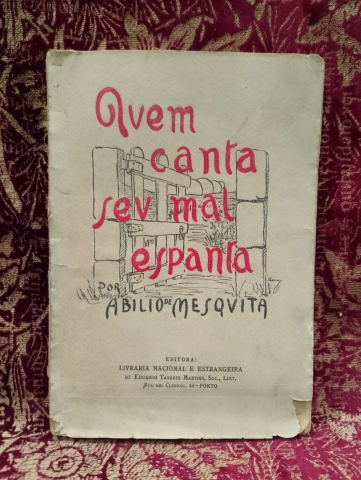 Qvem
canta
sev mal
espanta
POR
ABILIO DE MESQVITA
EDITORA:
LIVRARIA NACIONAL E ESTRANGEIRA
DE EDUARDO TAVARES MARTINS, SUC., LIMT.
RUA DOS CLERIGOS, —PORTO